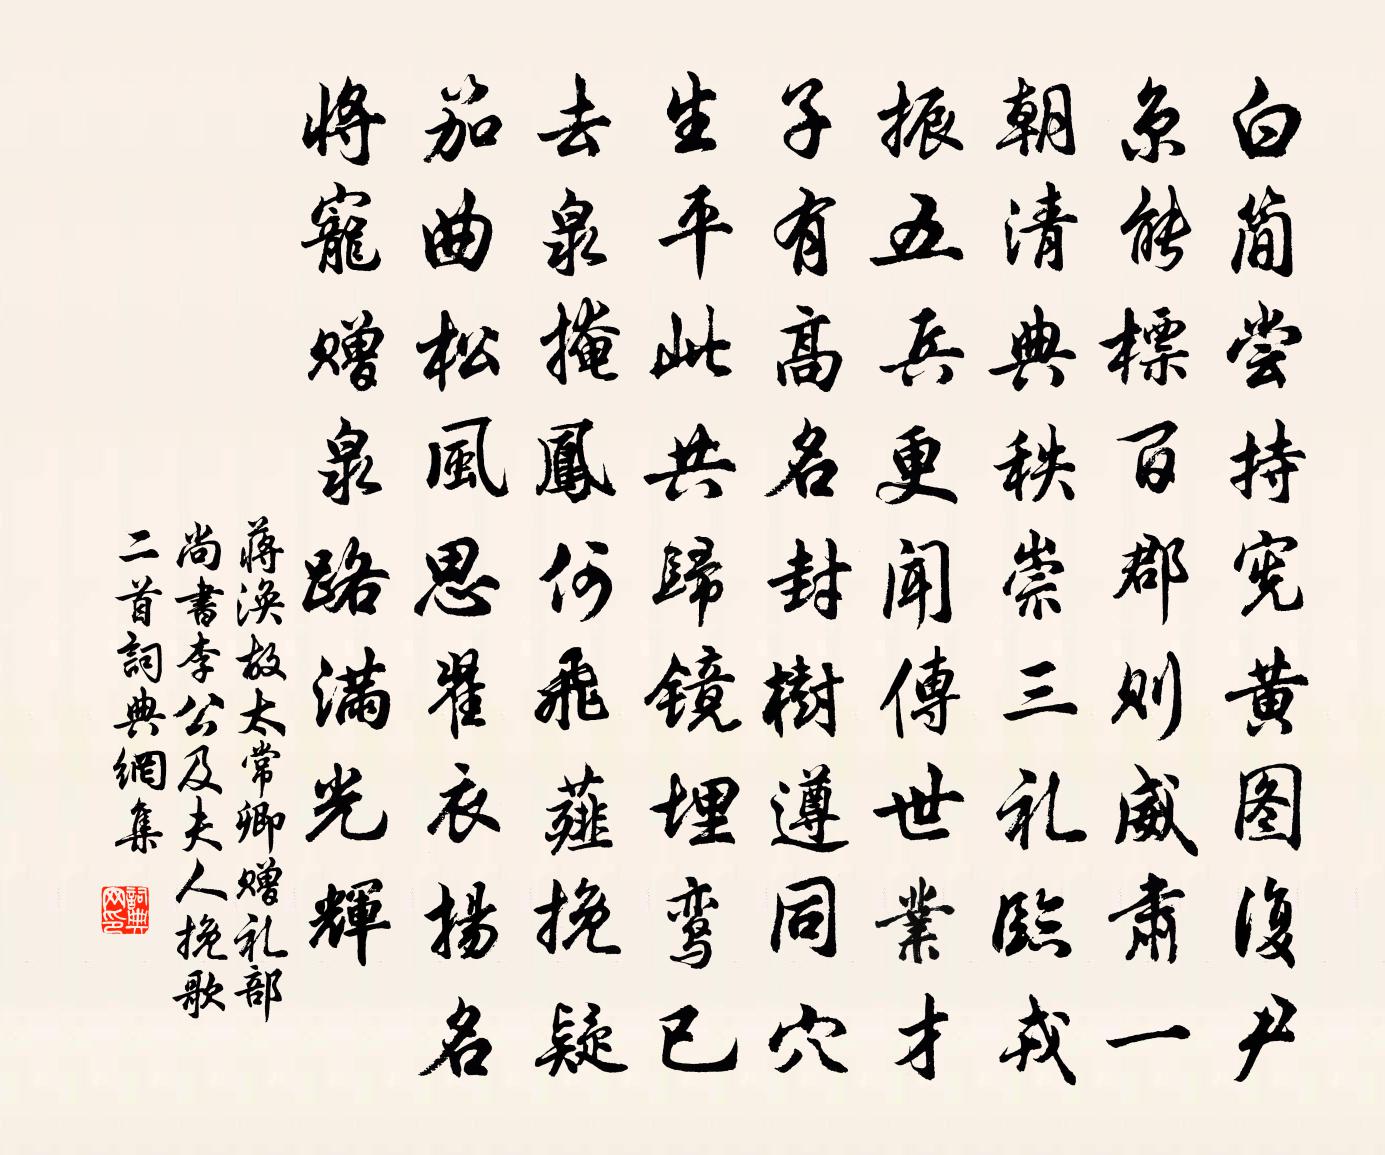 白简尝持宪黄图復尹
京能標百郡则威肅一
朝清典秩崇三礼臨戎
振五兵更闻傳世業才
子有高名封樹遵同穴
生平此共歸镜埋鸾已
去泉掩鳳何飛薤挽疑
笳曲松風思翟衣揚名
將寵赠泉路满光輝
蒋涣故太常卿赠礼部
尚書李公及夫人挽歌
二首詞典網集
詞典网印